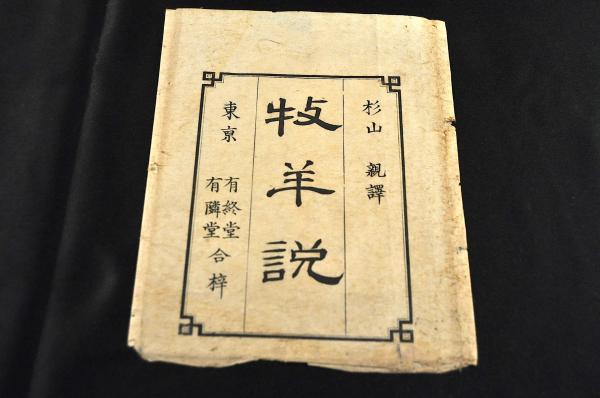 杉山 親譯
牧羊説
東京 有終堂
有隣堂 合梓